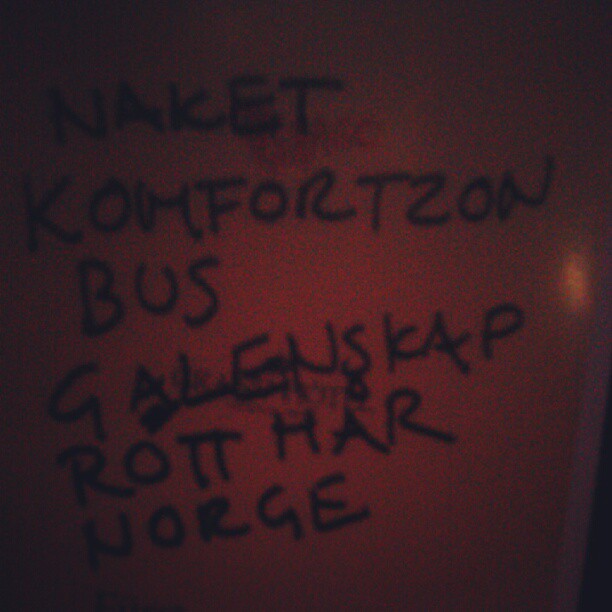 NAKET
KOMFORTZON
BUS
GALENSKAP
ROTT HÅR
NORGE